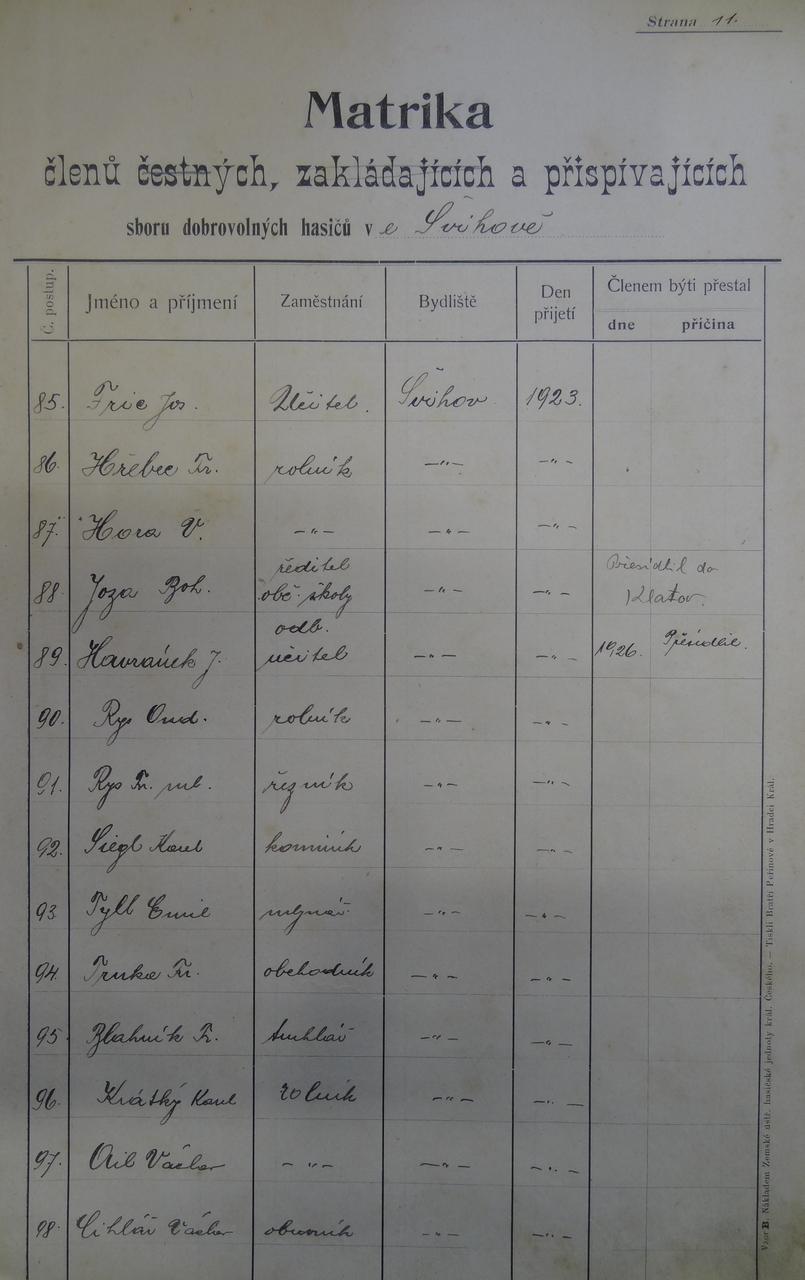 Strana 11.
Matrika
členů čestných, zakládajících a přispívajících
sboru dobrovolných hasičů v e Švihově
Č. postup. Jméno a příjmení Zaměstnání Bydliště Den přijetí Členem býti přestal
dne příčina
85. Fric Jos. Učitel. Švihov 1923.
86. Hřebec Fr. rolník —"— —"—
87. Hora V. —"— —"— —"—
88. Joza Boh. ředitel obč. školy —"— —"— Přesídlil do Klatov.
89. Havránek J. odb. učitel —"— —"— 1926. Přesídlil.
90. Rys Ond. rolník —"— —"—
91. Rys Fr. ml. řezník —"— —"—
92. Siegl Karel kominík —"— —"—
93 Tyll Emil mlynář —"— —"—
94. Trnka Fr. obchodník —"— —"—
95 Blahník Fr. truhlář —"— —"—
96. Krátký Karel rolník —"— —"—
97. Václav —"— —"— —"—
98. Cihlář Václav obuvník —"— —"—
Vzor B. Nákladem Zemské ústř. hasičské jednoty král. Českého. — Tiskli Bratři Peřinové v Hradci Král.